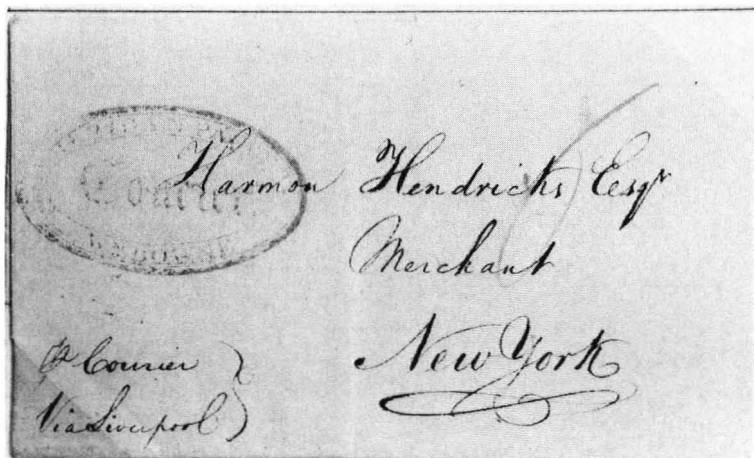 Courier
Harmon Hendricks Esqr
Merchant
New York
P Courier
Via Liverpool